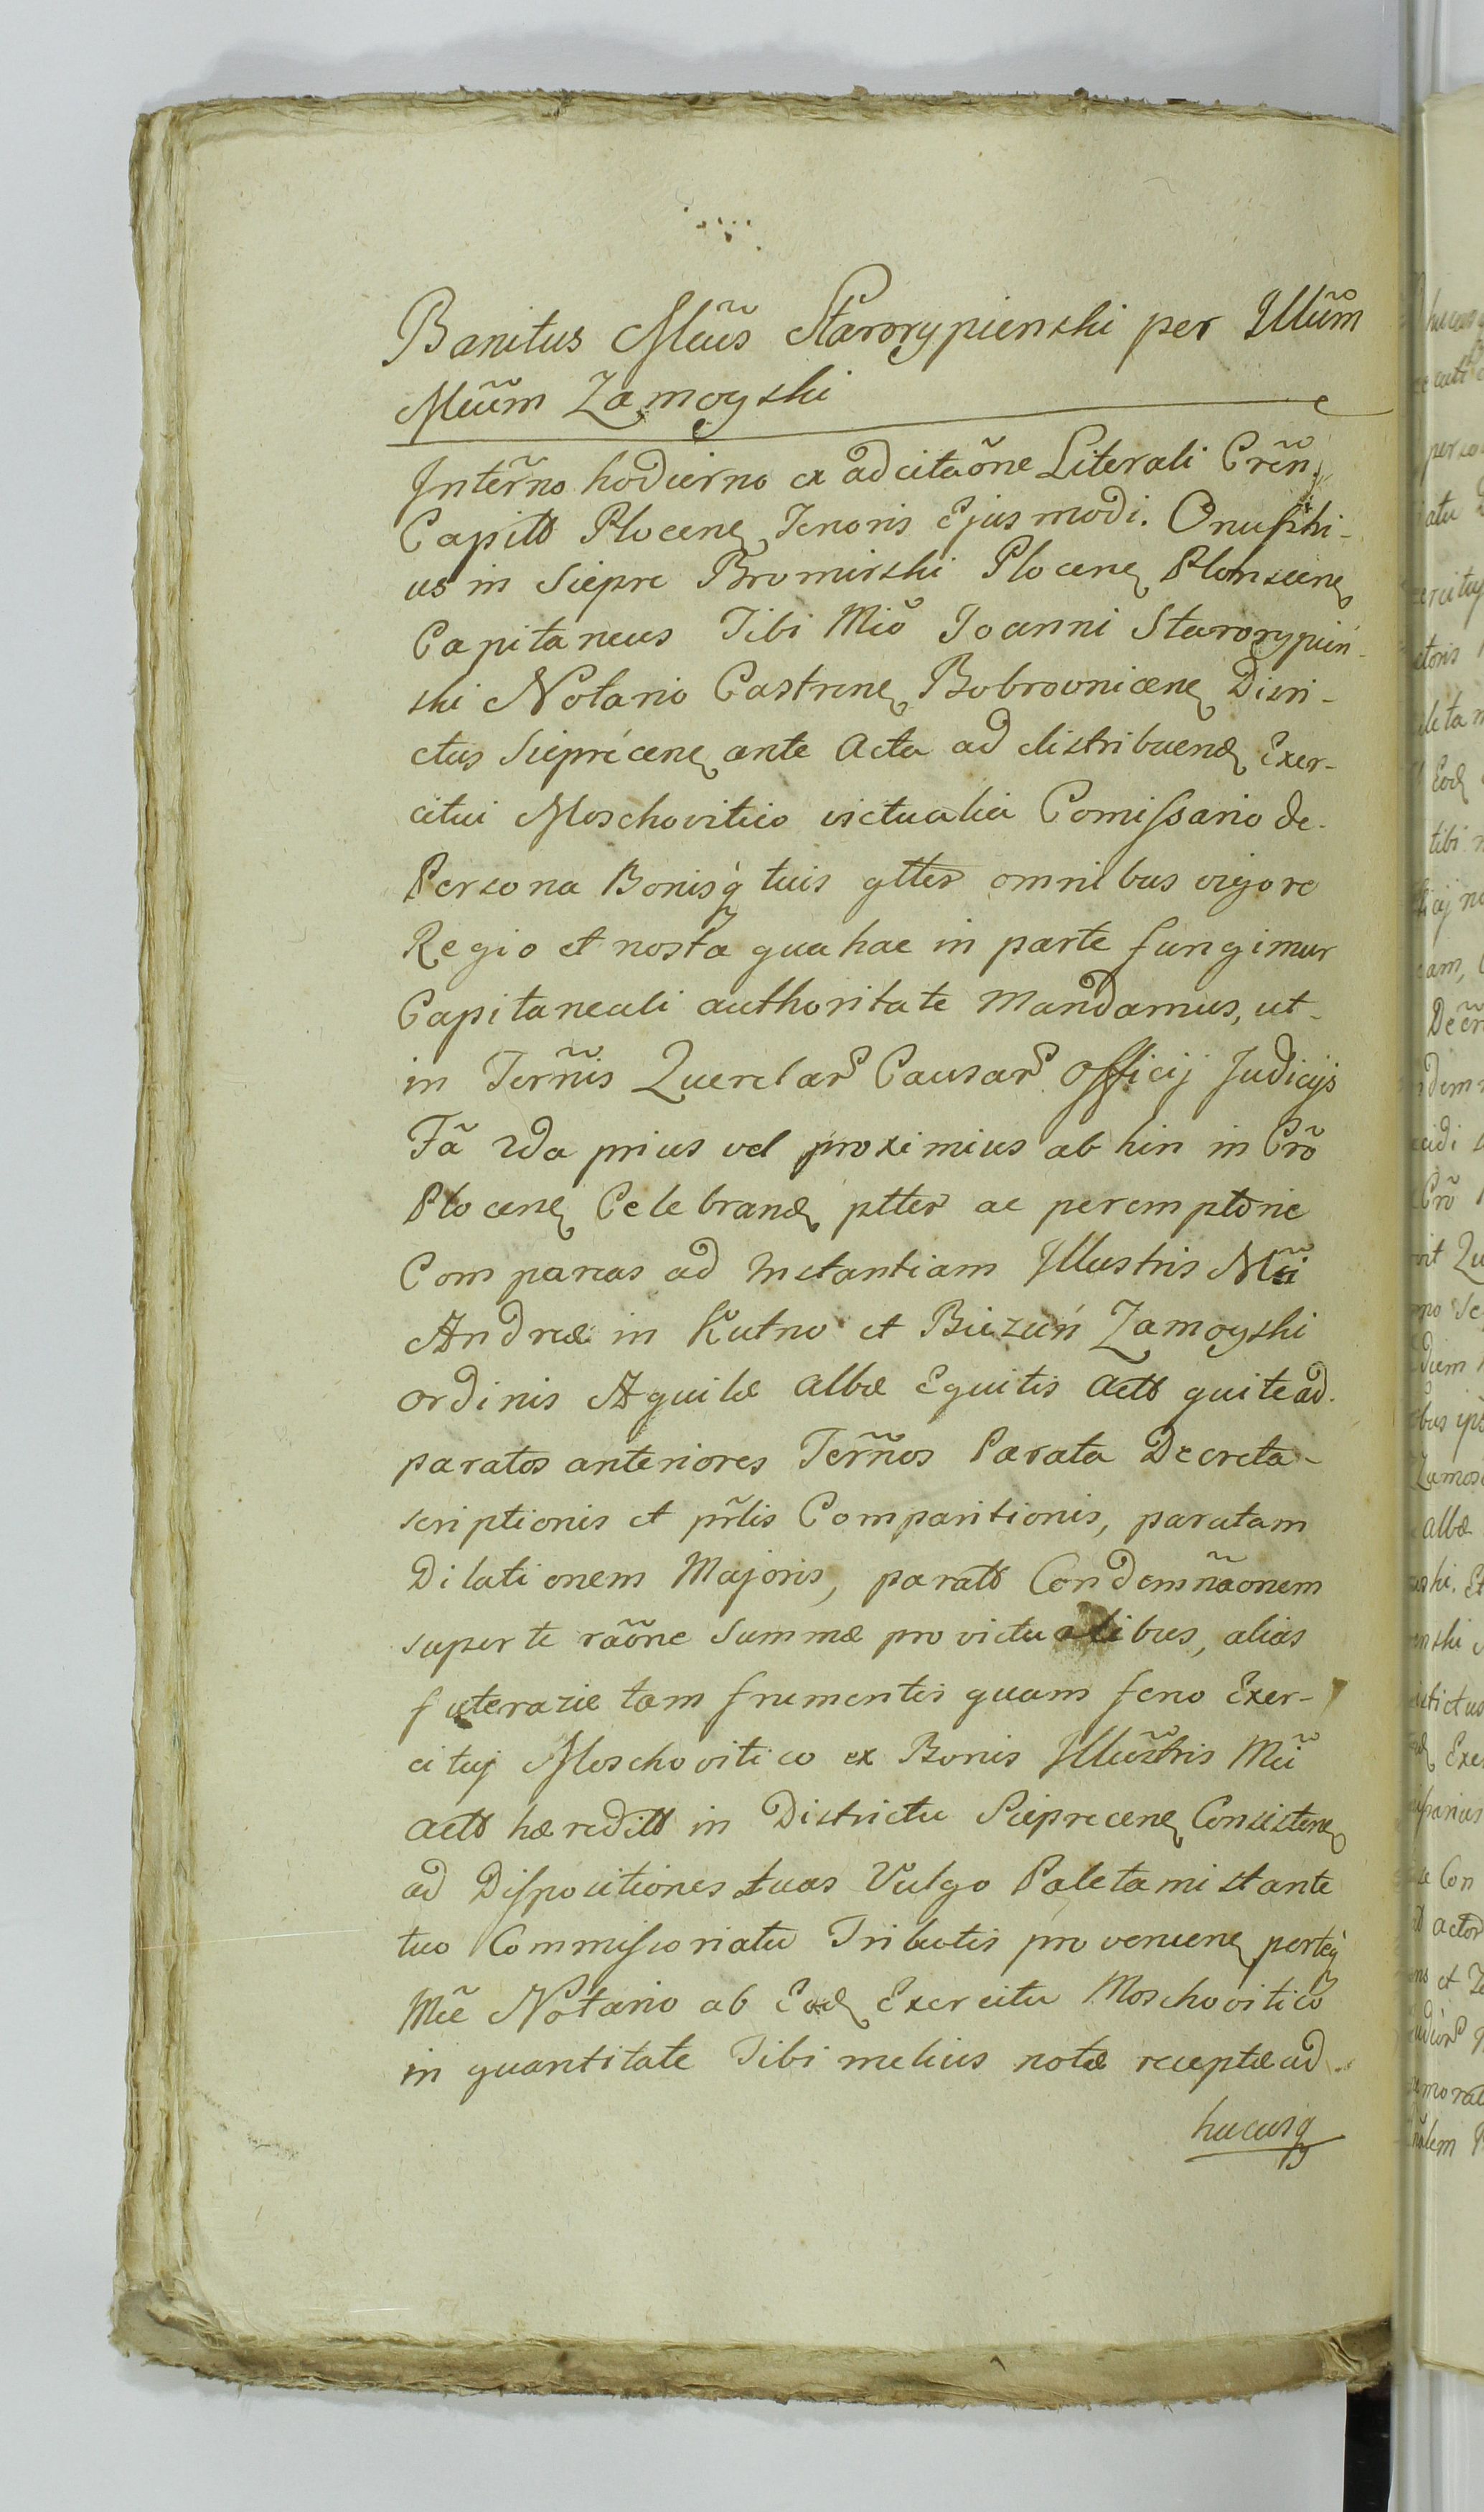 Banitus Mcus Starorypienski per Illum
Mcum Zamoyski
In terno hodierno ex adcitaone Literali Cren
Capitt Plocen Tenoris Ejusmodi. Onuphi-
us in Siepre Bromirski Plocen Plonscen
Capitaneus Tibi Mco Joanni Starorypien-
ski Notario Castren Bobrovnicen Distri-
ctus Sieprecen ante Acta ad distribuend Exer-
citui Moschovitico victualia Comissario de
Persona Bonisq tuis gtter omnibus vigore
Regio et nostra qua hac in parte fungimur
Capitaneali authoritate Mandamus, ut-
in Ternis Querelar Causar Officij Judicijs
Fa 2da prius vel proximius ab hin in Cro
Plocen Celebrand ptter ac peremptorie
Compareas ad Instantiam Illustris Mci
Andreæ in Kutno et Biezuń Zamoyski
Ordinis Aquilæ albæ Equitis actt qui te ad
paratos anteriores Ternos Parata Decreta-
scriptionis et prlis Comparitionis, paratam
Dilationem Majoris, paratt Condemnaonem
super te raone Summæ pro victualibus, alias
futeraźie tam frumentis quam feno Exer-
cituj Moschovitico ex Bonis Illustris Mci
actt hæreditt in Districtu Sieprecen Consisten
ad Dispocitiones tuas Vulgo Paletami stante
tuo Commissoriatu Tributis provenien per teq
Mce Notario ab Eod Exercitu Moschovitico
in quantitate Tibi melius notæ receptæ ad
hucusq